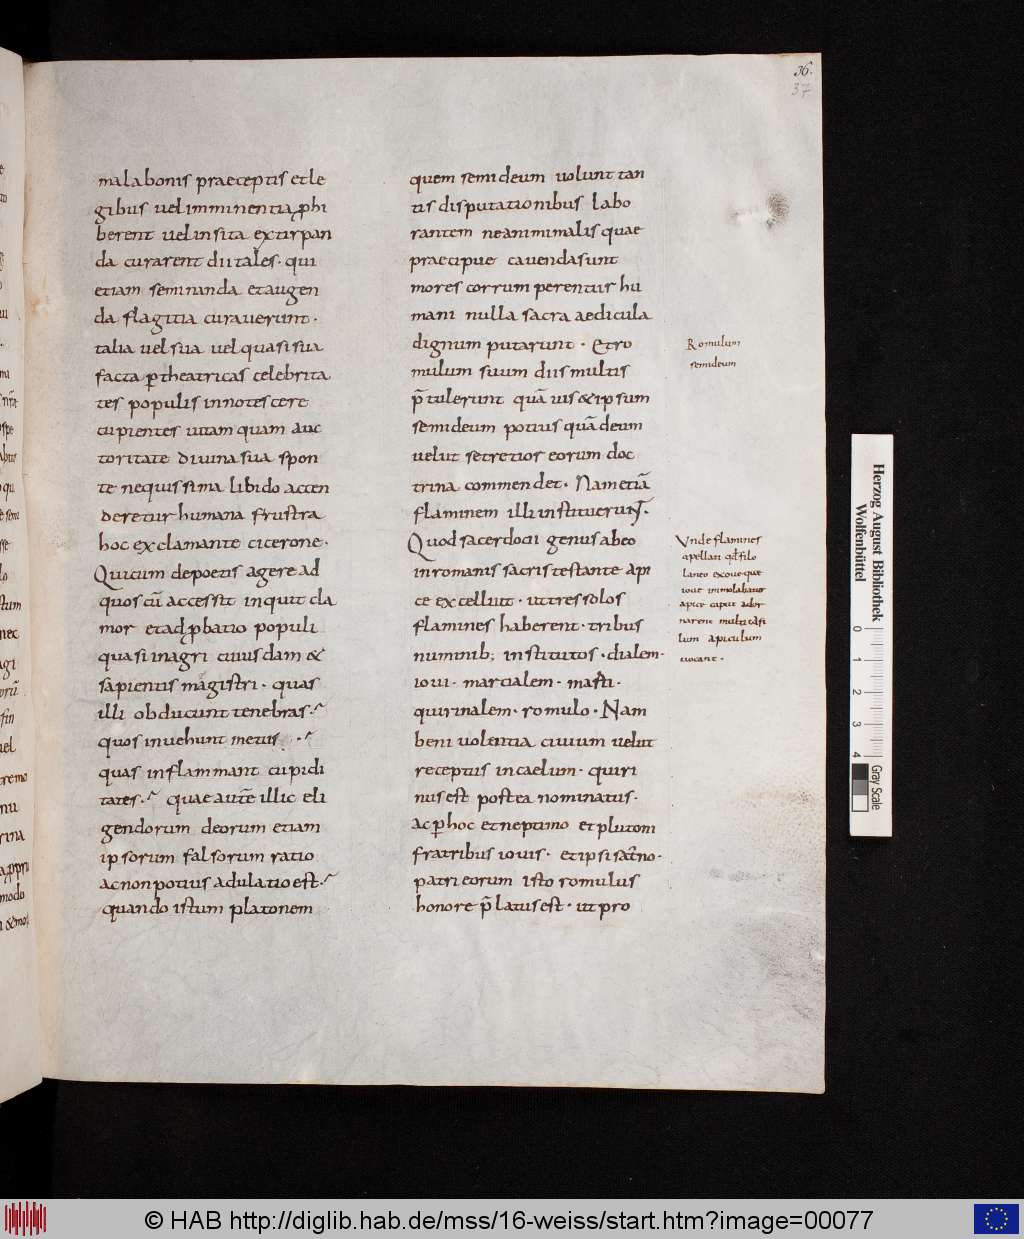 36.
37
mala bonis praeceptis et le
gibus uel imminentia ꝓhi
berent uel insita extirpan
da curarent dii tales · qui
etiam seminanda et augen
da flagitia curauerunt ·
talia uel sua uel quasi sua
facta ꝑ theatricas celebrita
tes populis innotescere
cupientes utiam quam auc
toritate diuina sua spon
te nequissima libido accen
deretur humana frustra
hoc exclamante cicerone ·
Qui cum de poetis ageret ad
quos cū accessit inquit cla
mor et adꝓbatio populi
quasi magri cuiusdam &
sapientis magistri · quas
illi obducunt tenebras ·
quos inuehunt metus ·
quas inflammant cupidi
tates · Quae autē illic eli
gendorum deorum etiam
ipsorum falsorum ratio
ac non potius adulatio est ·
quando istum platonem
quem semideum uolunt tan
tis disputationibus labo
rantem ne animi malis quae
praecipue cauenda sunt
mores corrumperentur hu
mani nulla sacra aedicula
dignum putarunt · Et ro
mulum suum diis multis
p̄tulerunt quā uis & ipsum
semideum potius quā deum
uelut secretior eorum doc
trina commendet · Nam etiā
flaminem illi instituerunt ·
Quod sacerdocii genus abeo
in romanis sacris testante api
ce excelluit · ut tres solos
flamines haberent · tribus
numinib; institutos · dialem ·
ioui · marcialem · marti ·
quirinalem · romulo · Nam
beniuolentia ciuium uelut
receptus in caelum · quiri
nus est postea nominatus ·
Ac ꝑ hoc et neptuno et plutoni
fratribus iouis · et ipsi saturno ·
patri eorum isto romulus
honore p̄latus est · ut pro
Romulum
semideum
Vnde flamines
apellati qđ filo
laneo ex oue que
ioui immolabatur
apice caput ador
narent multi tali
lum apiculum
uocant ·
Herzog August Bibliothek
Wolfenbüttel
0 1 2 3 4
Gray Scale
© HAB http://diglib.hab.de/mss/16-weiss/start.htm?image=00077